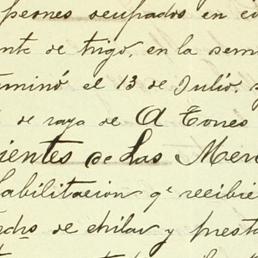 peones ocupados en co
nte de trigo, en la sem
minó el 13 de Julio,
de raya de A Tones
ientes de Las Mer
abilitacion qe recibie
de chilar y prest